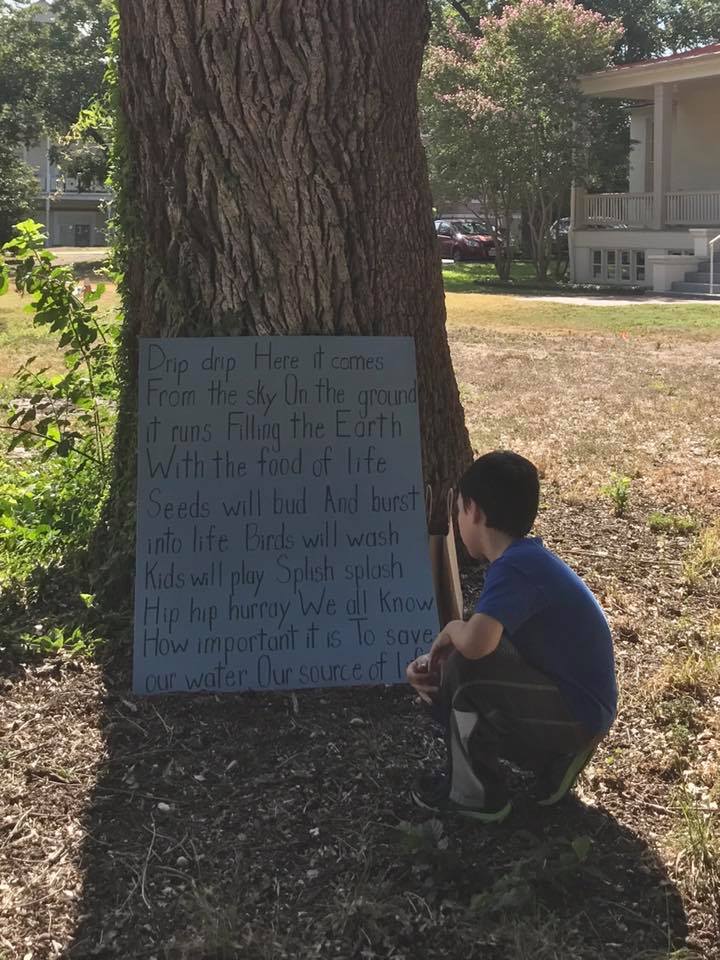 Drip drip Here it comes
From the sky On the ground
it runs Filling the Earth
With the food of life
Seeds will bud And burst
into life Birds will wash
Kids will play Splish splash
Hip hip hurray We all Know
How important it is To save
our water Our source of